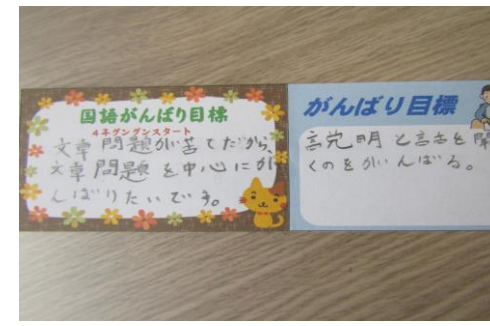 国語がんばり目標
4ネグングンスタート
文章問題が苦てだから、
文章問題を中心にが
んばりたいです。
がんばり目標
説明と
くのをがんばる。